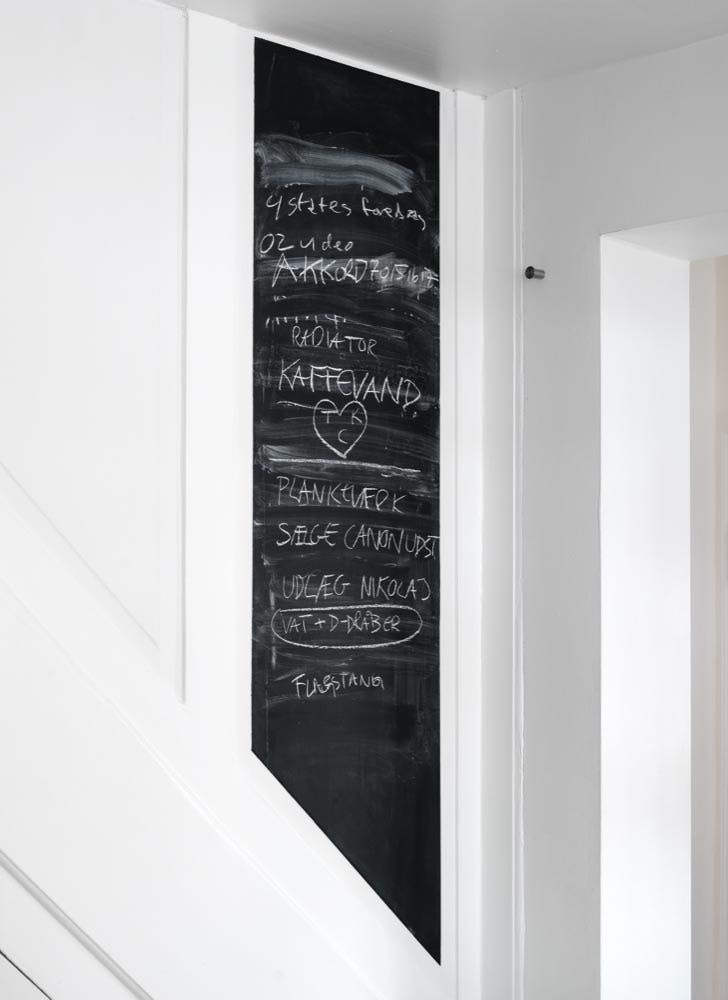 4 states foredrag
02 video
AKKORD 7015 1617
RADIATOR
KAFFEVAND
T K
C
PLANKEVÆRK
SÆLGE CANON UDST
UDLÆG NIKOLAJ
VAT + D-DRÅBER
FLAGSTANG